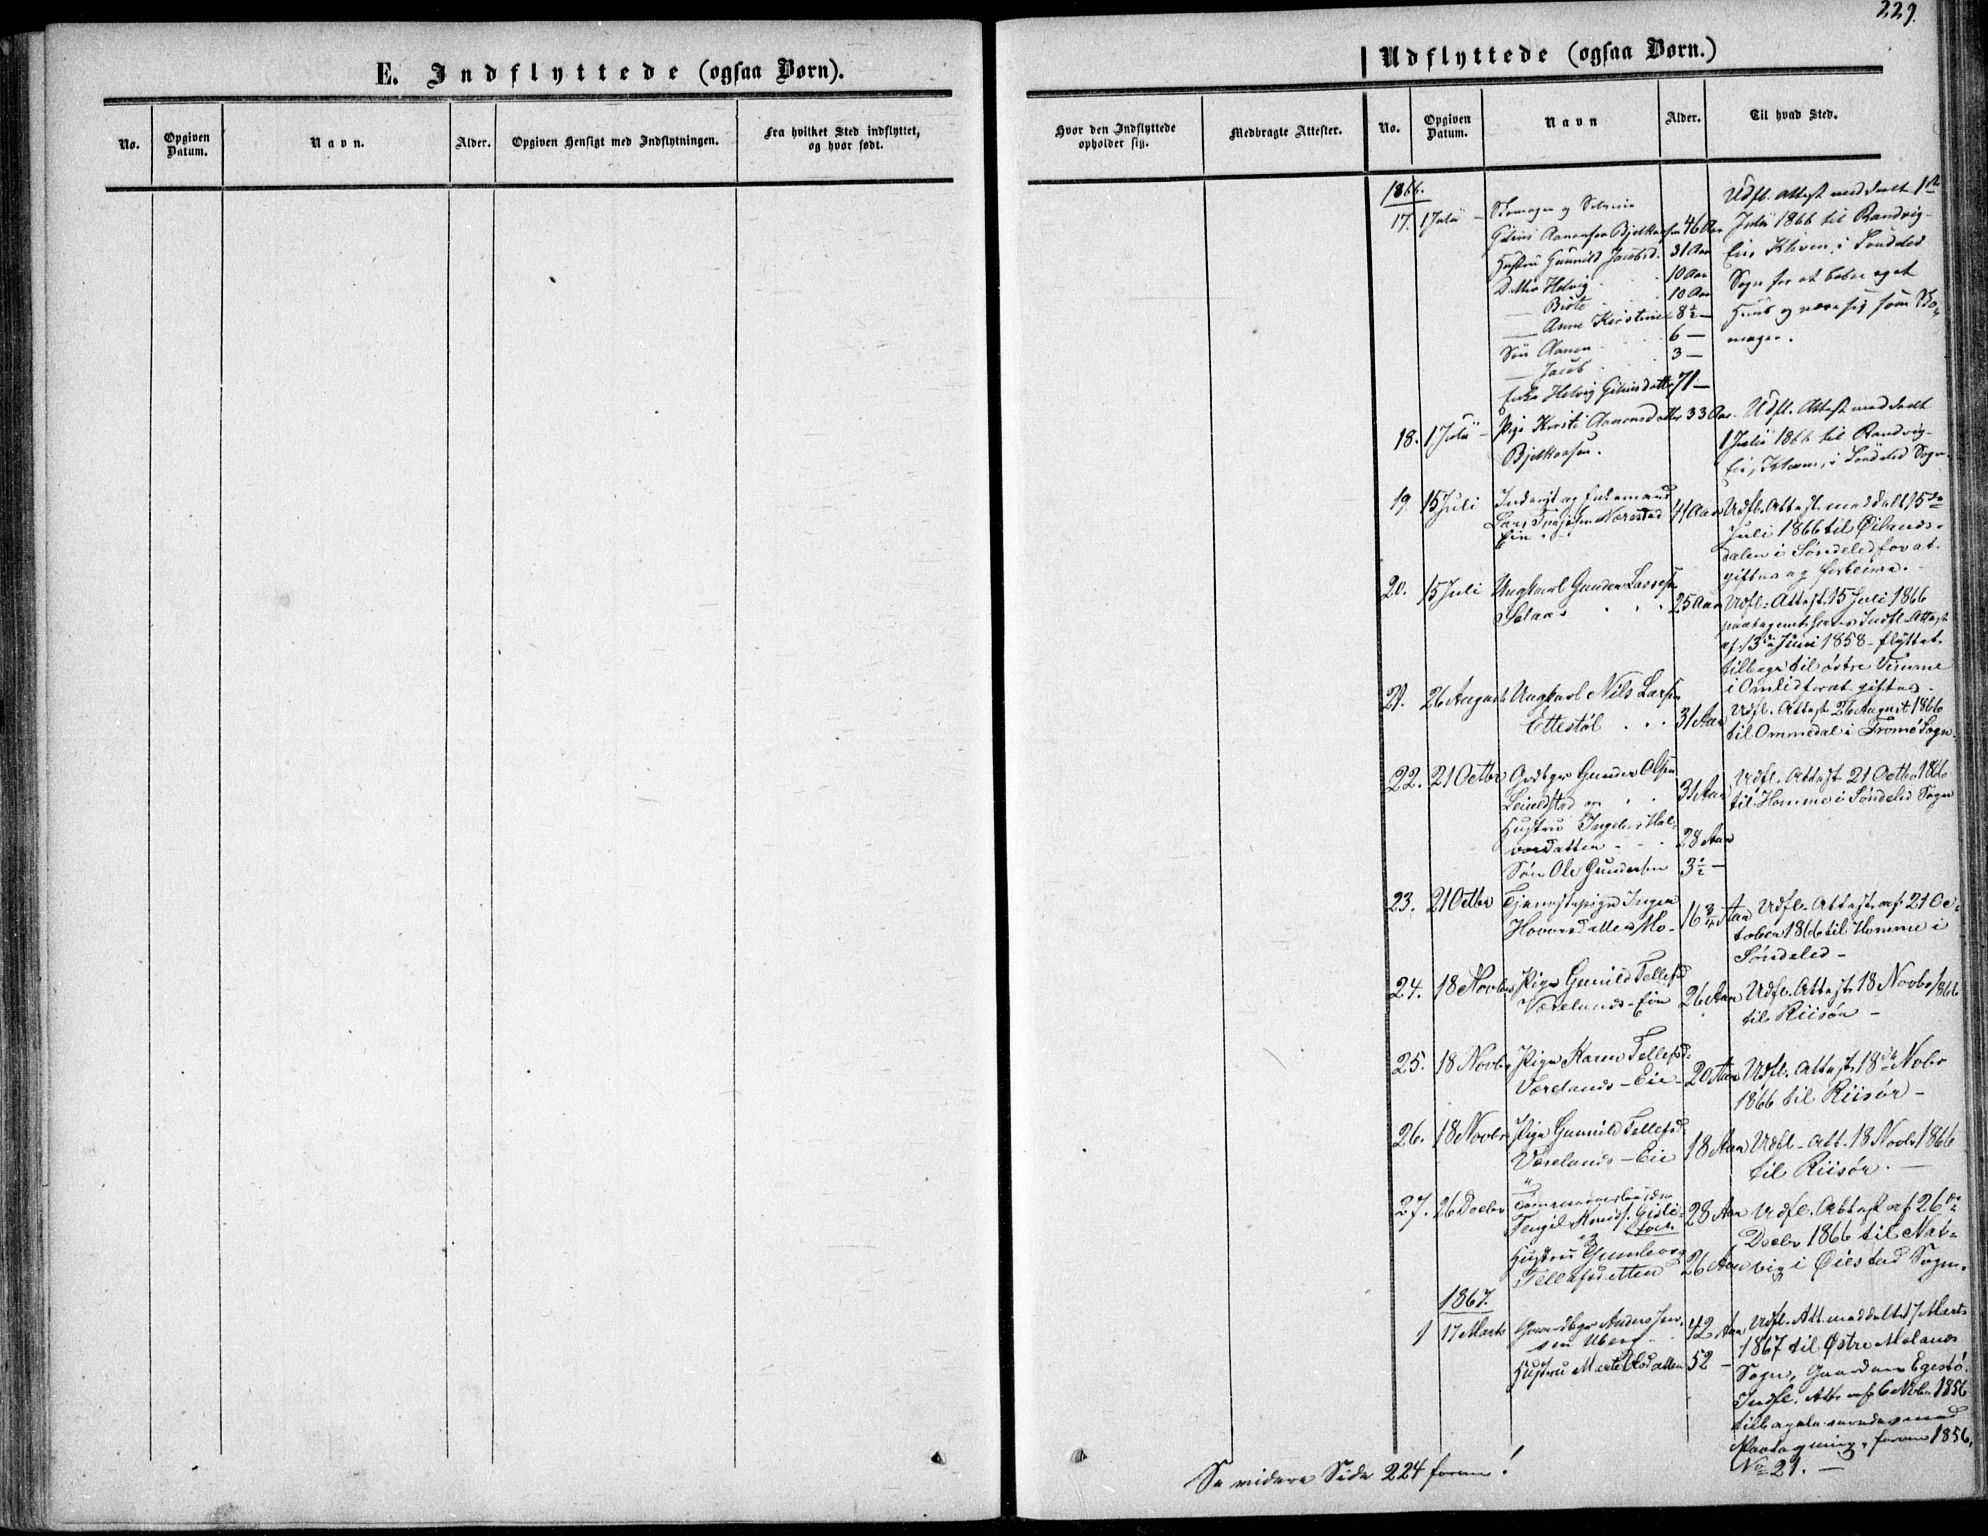 229.
E. Indflyttede (ogsaa Børn).
No.
Opgiven Datum.
Navn.
Alder.
Opgiven Hensigt med Indflytningen.
Fra hvilket Sted indflyttet, og hvor født.
Udflyttede (ogsaa Børn.)
Hvor den Indflyttede opholder sig.
Medbragte Attester.
No.
Opgiven Datum.
Navn
Alder.
Til hvad Sted.
1866.
17. 1 Juli
Skomager og
Aanonsen 46 Aar
Hustru Gunnild Jacobsd. 31 Aar
Døttre Helvig 10 Aar
— Birte 10 Aar
— Anne Kirstine 8½ —
Søn Aanon 6 —
— Jacob 3 —
Enke Helvig 71 —
Udfl. Attest meddeelt 1ste
Juli 1866 til Randvig-
Eie, i Søndeled
Sogn for at beboe eget
Huus og nære sig som Sko-
mager.
18. 1 Juli — Pige Kirsti Aanonsdatter 33 Aar
Udfl. Attest meddeelt
1 Juli 1866 til Randvig-
Eie, i Søndeled Sogn
19. 15 Juli
og Enkemand
Lars Nærestad 41 Aar
Eie
Udfl. Attest meddelt 15de
Juli 1866 til Øilands-
dalen i Søndeled for at
giftes og forblive.
20. 15 Juli Ungkarl Gunder Larsen
Solaas 25 Aar
Udfl. Attest 15 Juli 1866
paategnet hans Indfl. Attest
af 13de Juni 1858 – flyttet
tilbage til østre Vimme
i Omlid for at giftes.
21. 26 August Ungkarl Nils Larsen
Ettestøl 31 Aar
Udfl. Attest 26 August 1866
til Ommedal i Tromø Sogn.
22. 21 Octbr Gunder Olsen
og 31 Aar
Hustru Ingeber Hal-
vorsdatter 28 Aar
Søn Ole Gundersen 3½ —
Udfl. Attest 21 Octbr 1866
til Homme i Søndeled Sogn
23. 21 Octbr Tjenestepige Inger
Hovorsdatter Mo- 16¾ Aar
Udfl. Attest af 21 Oc-
tober 1866 til Homme i
Søndeled –
24. 18 Novbr Pige Gunild Tellefsd.
Værelands-Eie 26 Aar
Udfl. Attest 18 Novbr 1866
til Riisør –
25. 18 Novbr Pige Karen Tellefsd.
Værelands-Eie 20 Aar
Udfl. Attest 18de Novbr
1866 til Riisør –
26. 18 Novbr Pige Gunild Tellefsd.
Værelands-Eie 18 Aar
Udfl. Att. 18 Novbr 1866
til Riisør. —
27. 26 Decbr Tømmerarbeider
Tengil Knuds. 28 Aar
og
Hustru Gunborg
Tellefsdatter 26 Aar
Udfl. Attest af 26de
Decbr 1866 til Nat-
vig i Øiestad Sogn.
1867.
1 17 Marts Gaardbr. Anders Jen-
sen Uberg 42 Aar
Hustru Marte Olsdatter 52 –
Udfl. Att. meddelt 17 Marts
1867 til Østre Molands
Sogn, Gaarden Egestø.
Indfl. Att. af 6 Novbr 1856
tilbageleveredes med
Paategning, foran 1856,
No 21. —
Se videre Side 224 foran!